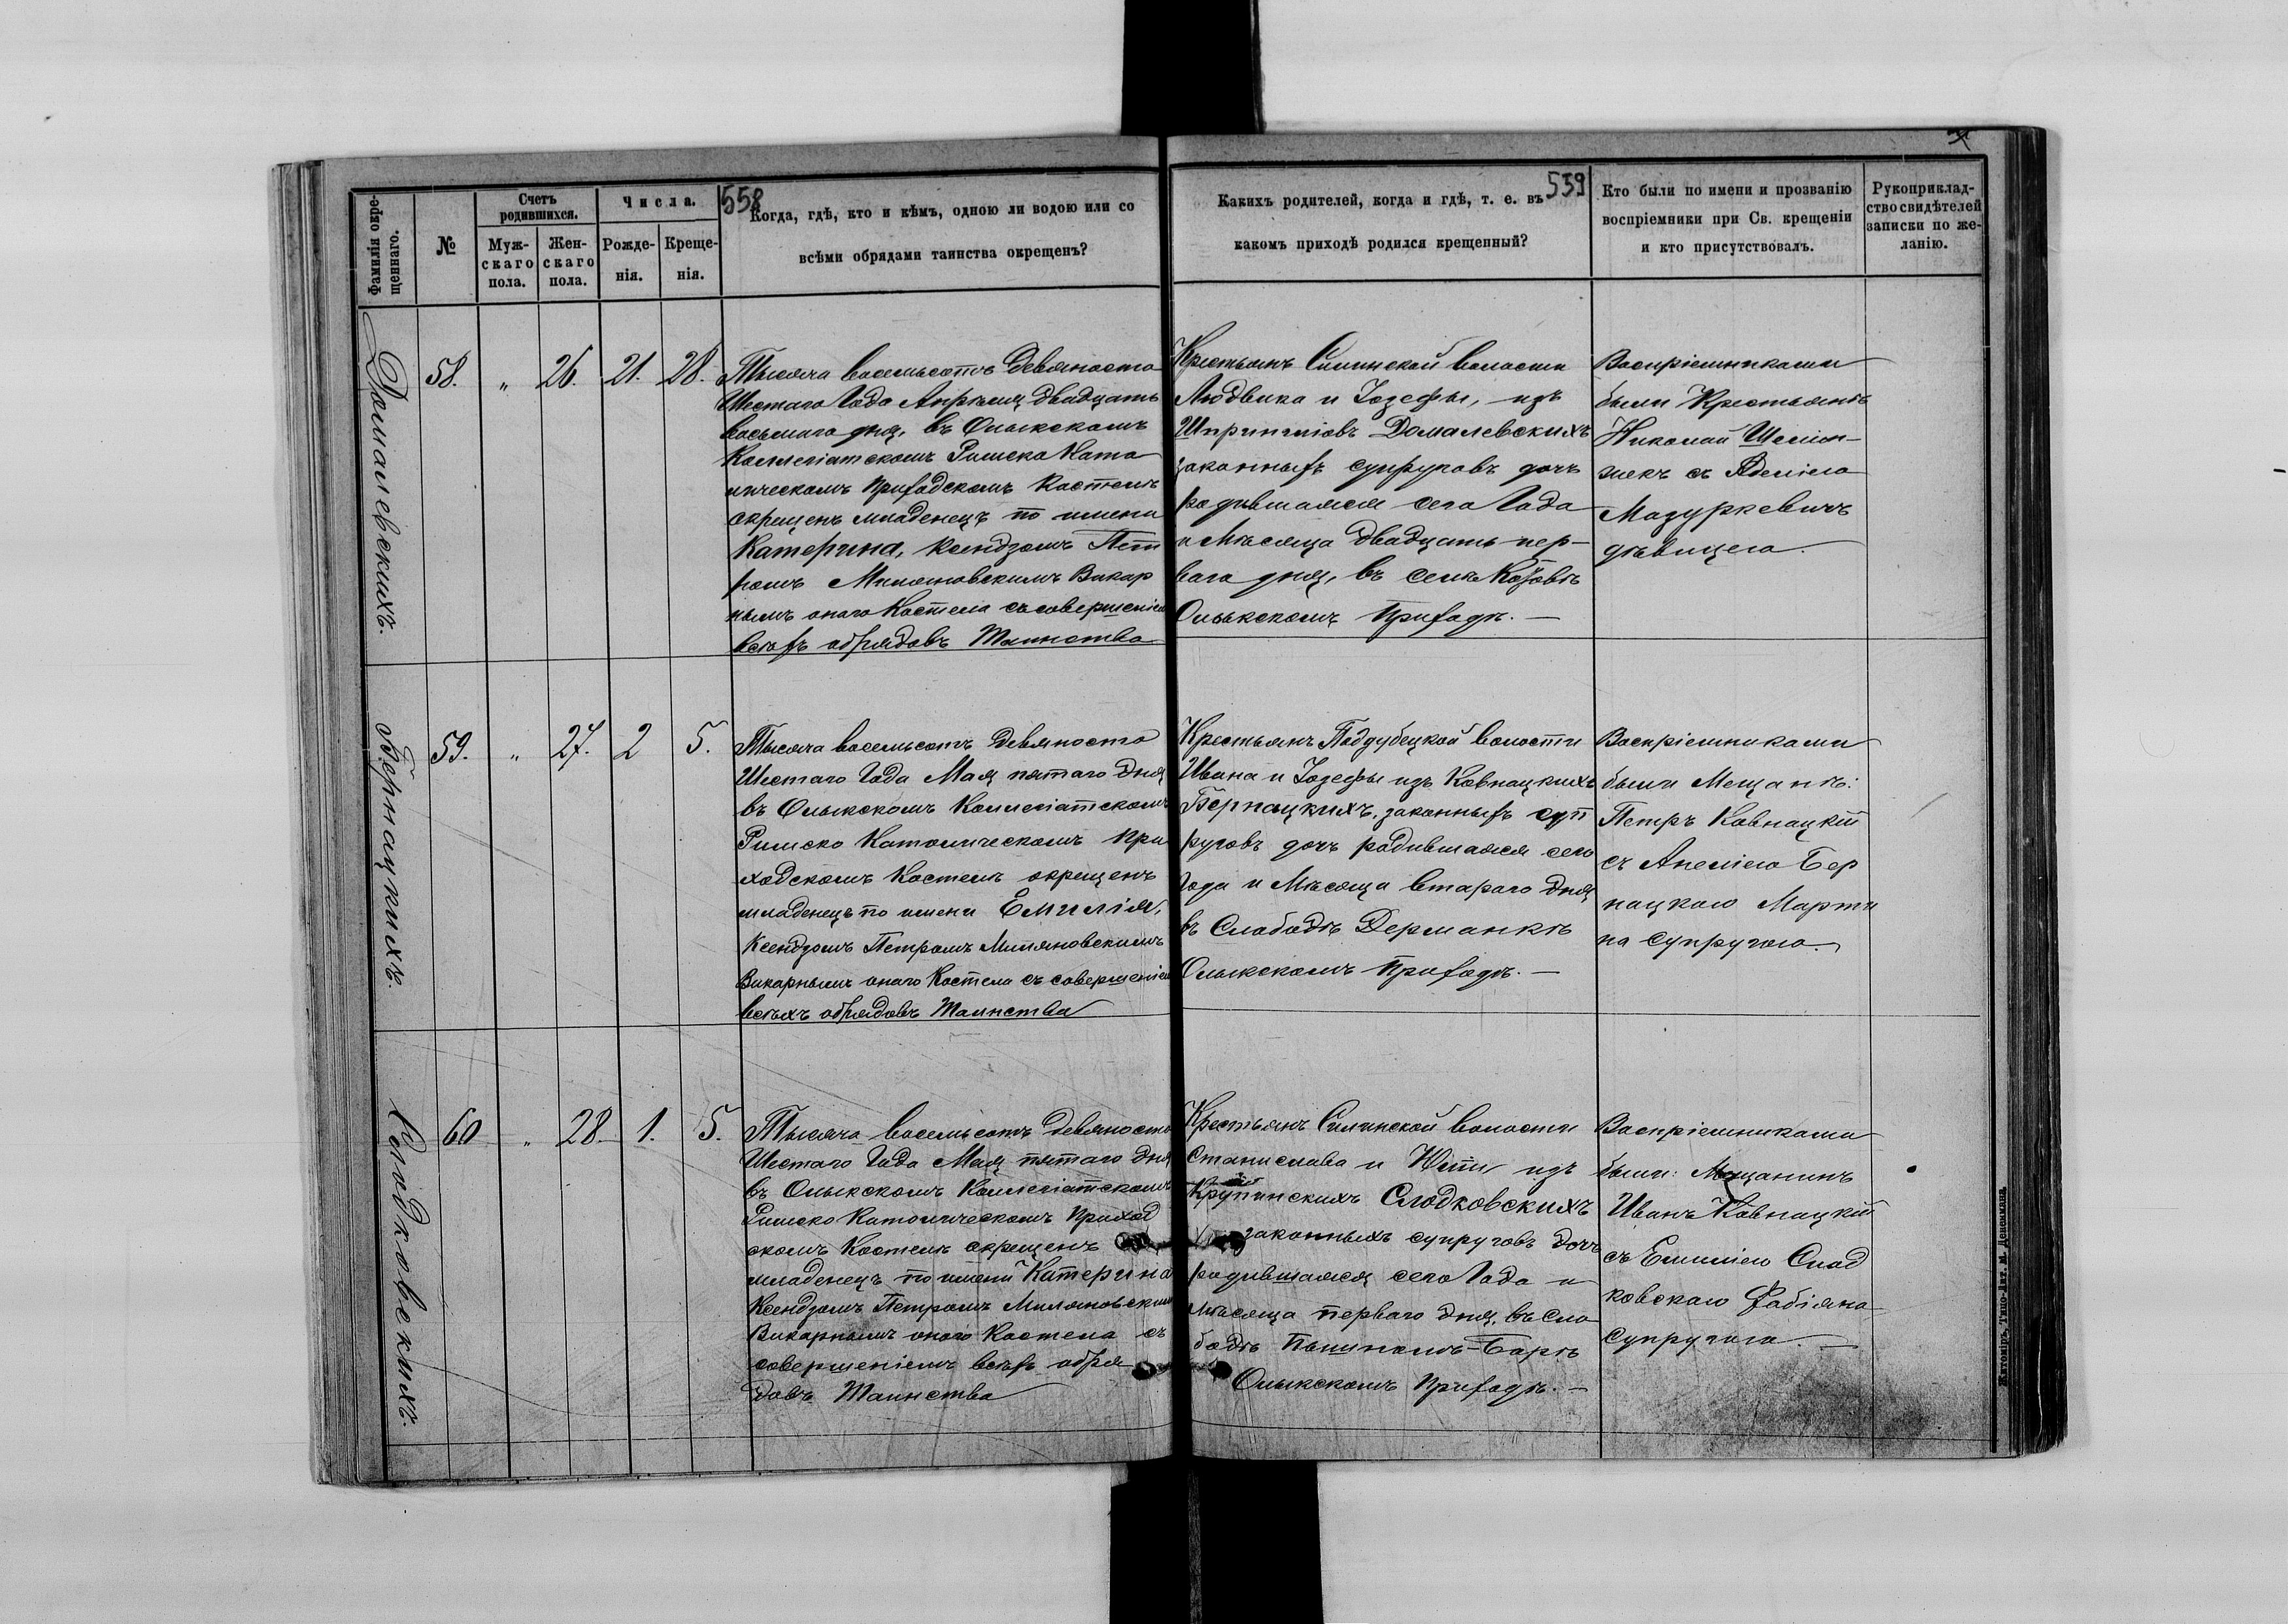 558
539
Фамилія окре-
щеннаго.
№
Счетъ
родившихся.
Муж-
скаго
пола.
Жен-
скаго
пола.
Числа.
Рожде-
нія.
Креще-
нія.
Когда, гдѣ, кто и кѣмъ, одною ли водою или со
всѣми обрядами таинства окрещенъ?
Какихъ родителей, когда и гдѣ, т. е. въ
какомъ приходѣ родился крещенный?
Кто были по имени и прозванію
воспріемники при Св. крещеніи
и кто присутствовалъ.
Рукоприклад-
ство свидѣтелей
записки по же-
ланію.
Домалевскихъ.
58. " 26. 21. 28.
Тысяча восемьсотъ девяносто
Шестаго Года Апрѣля двадцать
восьмаго дня, въ Олыкскомъ
Коллегіатскомъ Римско Като
лическомъ Приходскомъ Костелѣ
окрещенъ младенецъ по имени
Катерина, Ксендзомъ Пет
ромъ Миляновскимъ Викар
нымъ онаго Костела съ совершеніем
всѣхъ обрядовъ Таинства
Крестьянъ Силинской волости
Людвика и Іозефы, изъ
Домалевскихъ
законныхъ супруговъ дочь
родившаяся сего Года
и Мѣсяца двадцать пер-
ваго дня, въ селѣ
Олыкскомъ Приходѣ. —
Воспріемниками
были Крестьянъ
Николай
съ Аделіею
Мазуркевичъ
дѣвицею.
Бернацкихъ.
59. " 27. 2 5.
Тысяча восемьсотъ девяносто
Шестаго Года Мая пятаго дня
въ Олыкскомъ Коллегіатскомъ
Римско Католическомъ При
ходскомъ Костелѣ окрещенъ
младенецъ по имени Емилія,
Ксендзомъ Петромъ Миляновскимъ
Викарнымъ онаго Костела съ совершеніем
всѣхъ обрядовъ Таинства
Крестьянъ Поддубецкой волости
Ивана и Іозефы изъ Ковнацкихъ
Бернацкихъ, законныхъ суп
руговъ дочь родившаяся сего
Года и Мѣсяца втараго дня
въ Слободѣ Дерманкѣ
Олыкскомъ Приходѣ. —
Воспріемниками
были Мещанѣ:
Петръ Ковнацкій
съ Анеліею Бер
нацкою Марти
на супругою.
Слодковскихъ.
60 " 28. 1. 5.
Тысяча восемьсотъ девяносто
Шестаго Года Мая пятаго дня
въ Олыкскомъ Коллегіатскомъ
Римско Католическомъ Приход
скомъ Костелѣ окрещенъ
младенецъ по имени Катерина
Ксендзомъ Петромъ Миляновским
Викарнымъ онаго Костела съ
совершеніемъ всѣхъ обря
довъ Таинства
Крестьянъ Силинской волости
Станислава и изъ
Крупинскихъ Слодковскихъ
законныхъ супруговъ дочь
родившаяся сего Года и
Мѣсяца перваго дня, въ Сло
бодѣ
Олыкскомъ Приходѣ. —
Воспріемниками
были: Мѣщанинъ
Иванъ Ковнацкій
съ Емиліею Слод
ковскою Фабіяна
супругою. —
Житоміръ, Типо-Лит. М. Дененмана.